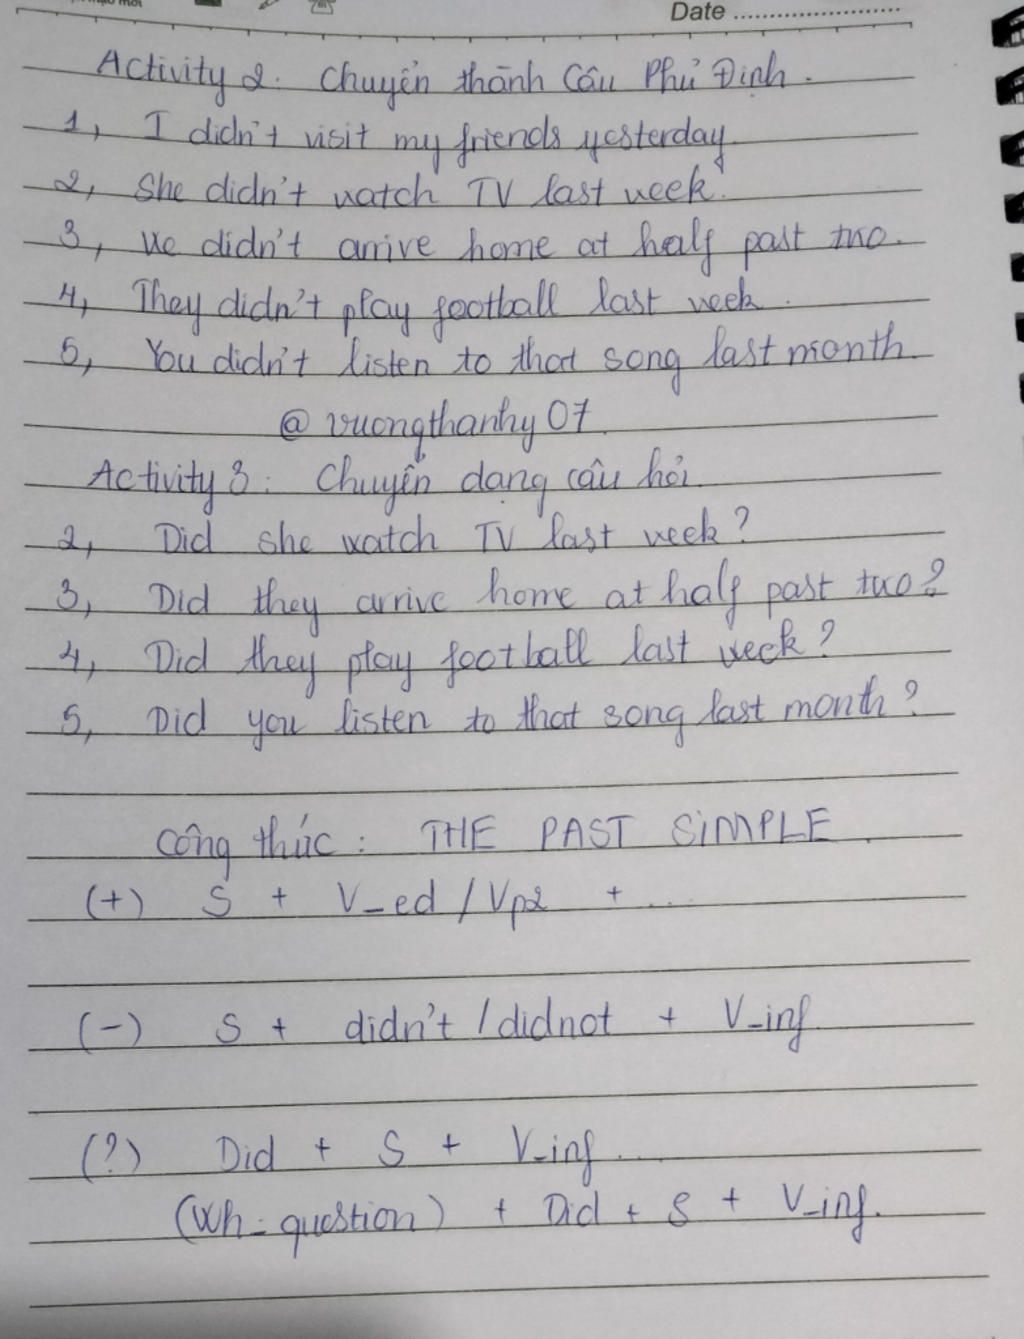 Date
Activity 2. Chuyển thành Câu Phủ Định.
1, I didn't visit my friends yesterday.
2, She didn't watch TV last week.
3, We didn't arrive home at half past two.
4, They didn't play football last week.
5, You didn't listen to that song last month.
@ vuongthanhy07
Activity 3: Chuyển dạng câu hỏi.
2, Did she watch TV last week?
3, Did they arrive home at half past two?
4, Did they play football last week?
5, Did you listen to that song last month?
Công thức: THE PAST SIMPLE.
(+) S + V_ed / Vp2 + ...
(-) S + didn't / didnot + V_inf.
(?) Did + S + V_inf ....
(Wh_question) + Did + S + V_inf.